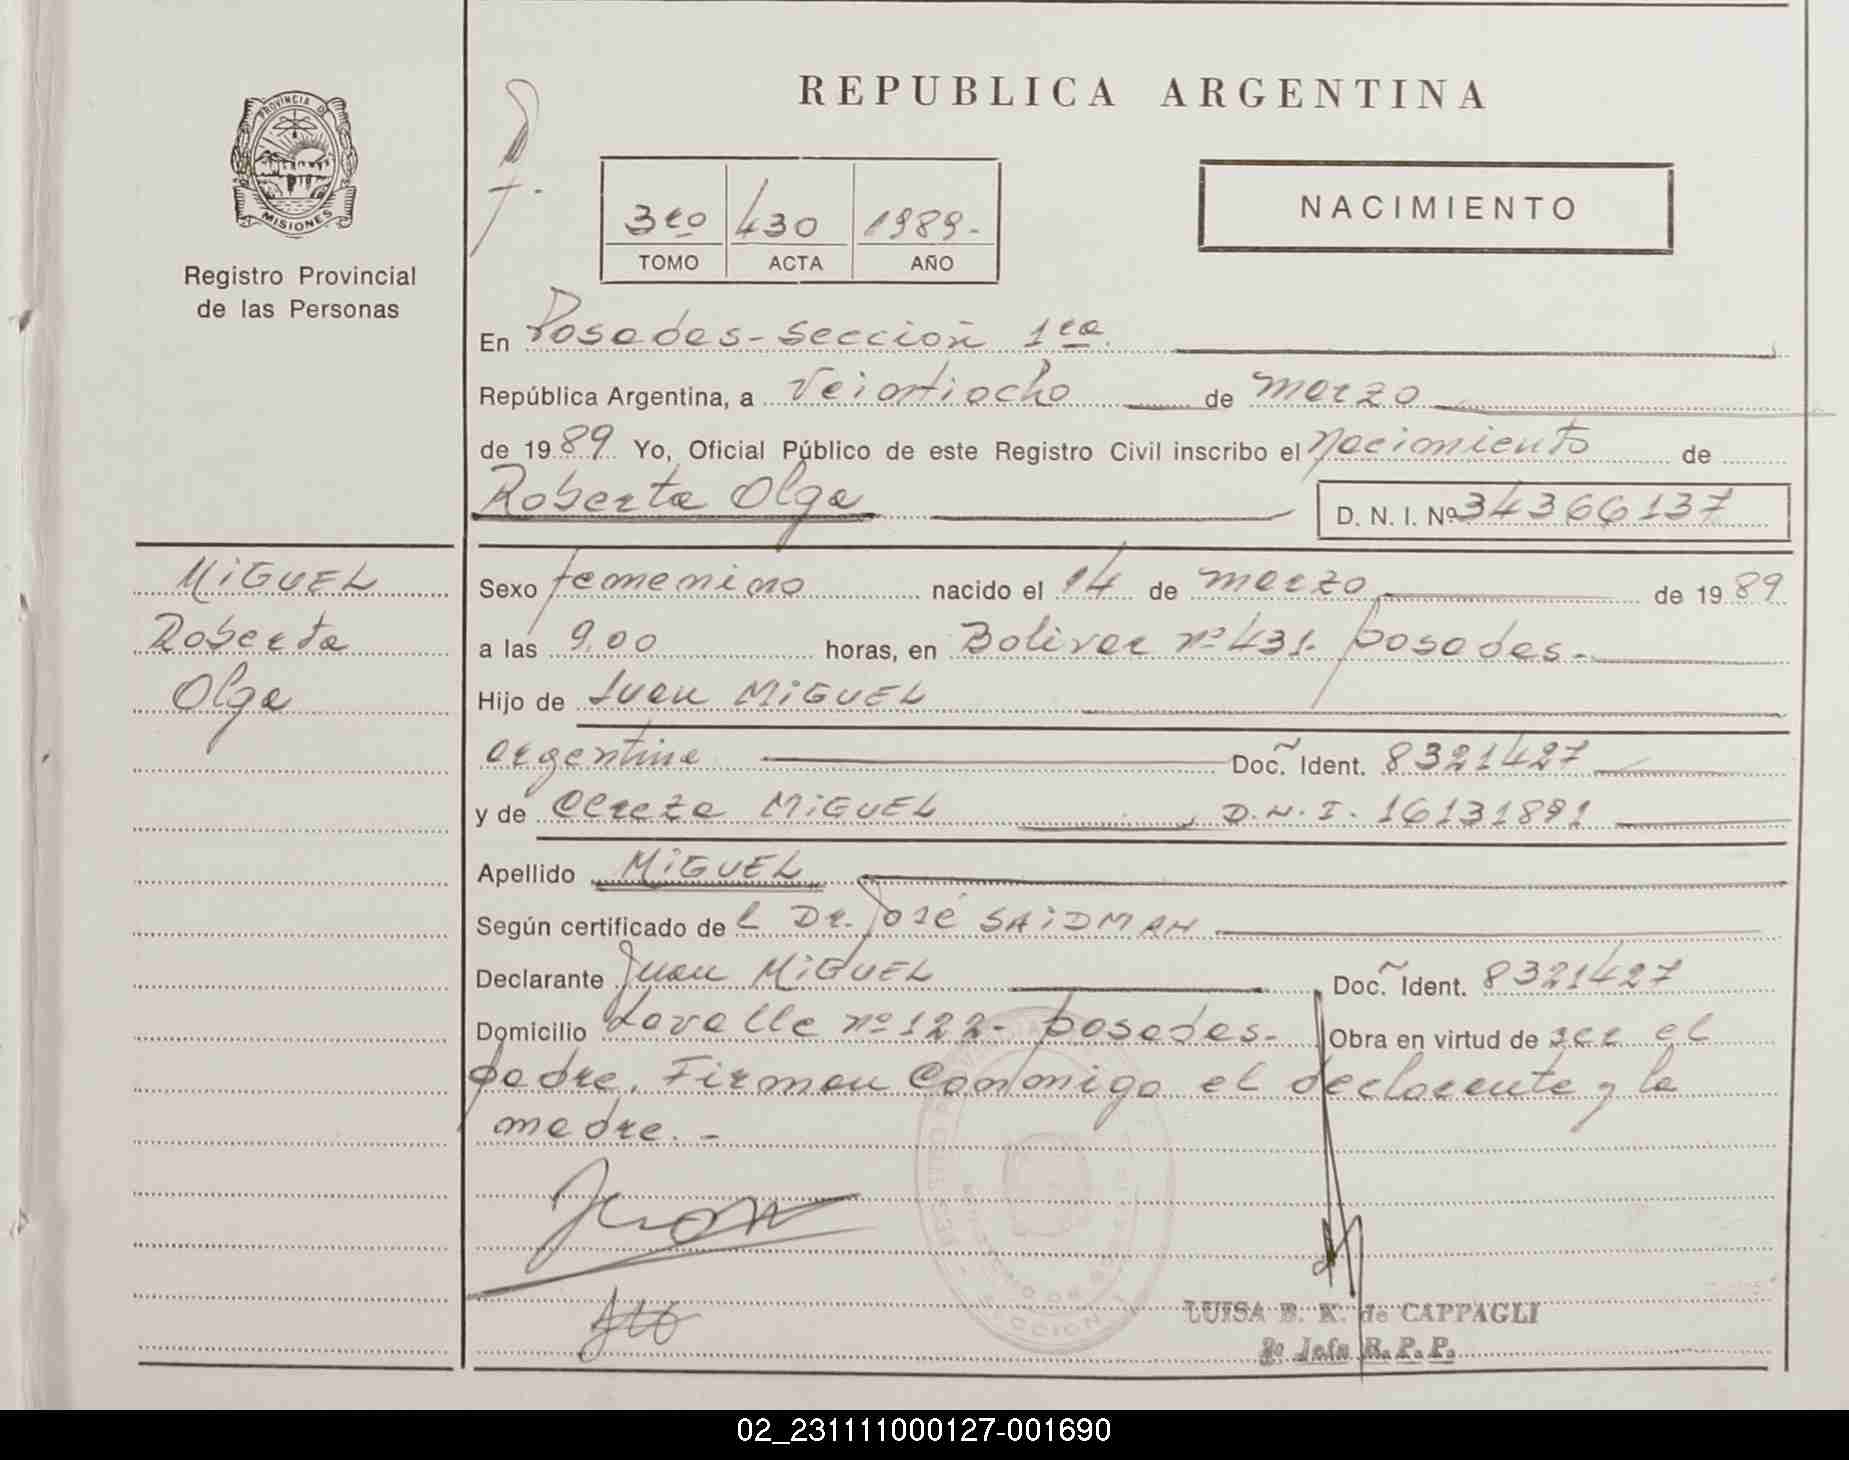 REPUBLICA ARGENTINA
PROVINCIA DE
MISIONES
Registro Provincial
de las Personas
3ro 430 1989.-
TOMO ACTA AÑO
NACIMIENTO
En Posadas - Sección 1ra.
República Argentina, a Veintiocho de marzo
de 1989 Yo, Oficial Público de este Registro Civil inscribo el nacimiento de
Roberta Olga D. N. I. Nº 34366137
MIGUEL
Roberta
Olga
Sexo femenino nacido el 14 de marzo de 1989
a las 9.00 horas, en Bolivar nº 431. posadas.-
Hijo de Juan MIGUEL
argentina Doc. Ident. 8321427
y de MIGUEL, D.N.I. 16131891
Apellido MIGUEL
Según certificado de l Dr. José SAIDMAN
Declarante Juan MIGUEL Doc. Ident. 8321427
Domicilio Lavalle nº 122- posadas- Obra en virtud de ser el
padre. Firman Conmigo el declarante y la
madre.-
Juan
LUISA B. K. de CAPPAGLI
2º Jefa R. P. P.
02_231111000127-001690